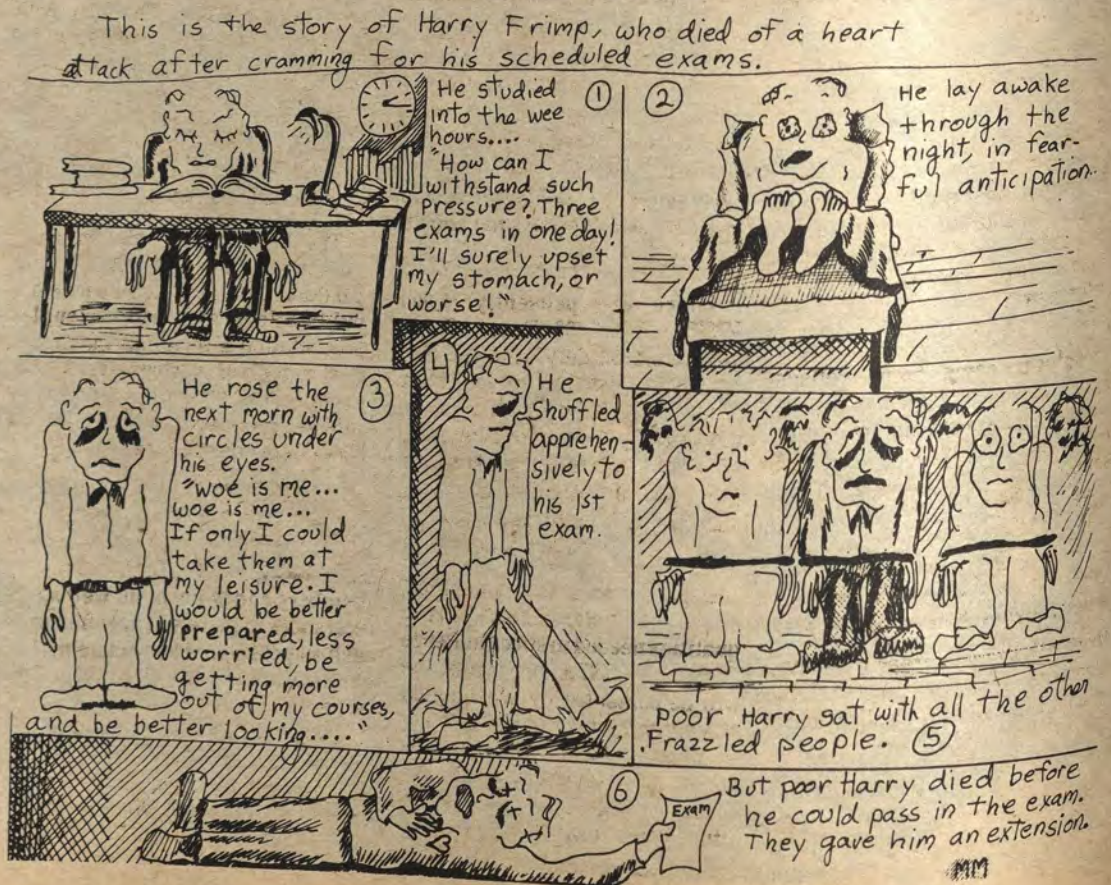 This is the story of Harry Frimp, who died of a heart
attack after cramming for his scheduled exams.
①
He studied
into the wee
hours....
"How can I
withstand such
Pressure? Three
exams in one day!
I'll surely upset
my stomach, or
worse!"
②
He lay awake
through the
night, in fear-
ful anticipation..
③
He rose the
next morn with
circles under
his eyes.
"woe is me...
woe is me...
If only I could
take them at
my leisure. I
would be better
prepared, less
worried, be
getting more
out of my courses,
and be better looking...."
4
He
shuffled
apprehen-
sively to
his 1st
exam.
poor Harry sat with all the other
Frazzled people. ⑤
⑥
Exam
But poor Harry died before
he could pass in the exam.
They gave him an extension.
MM